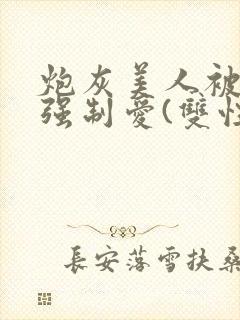 炮灰美人被
强制愛(雙性
長安落雪扶桑